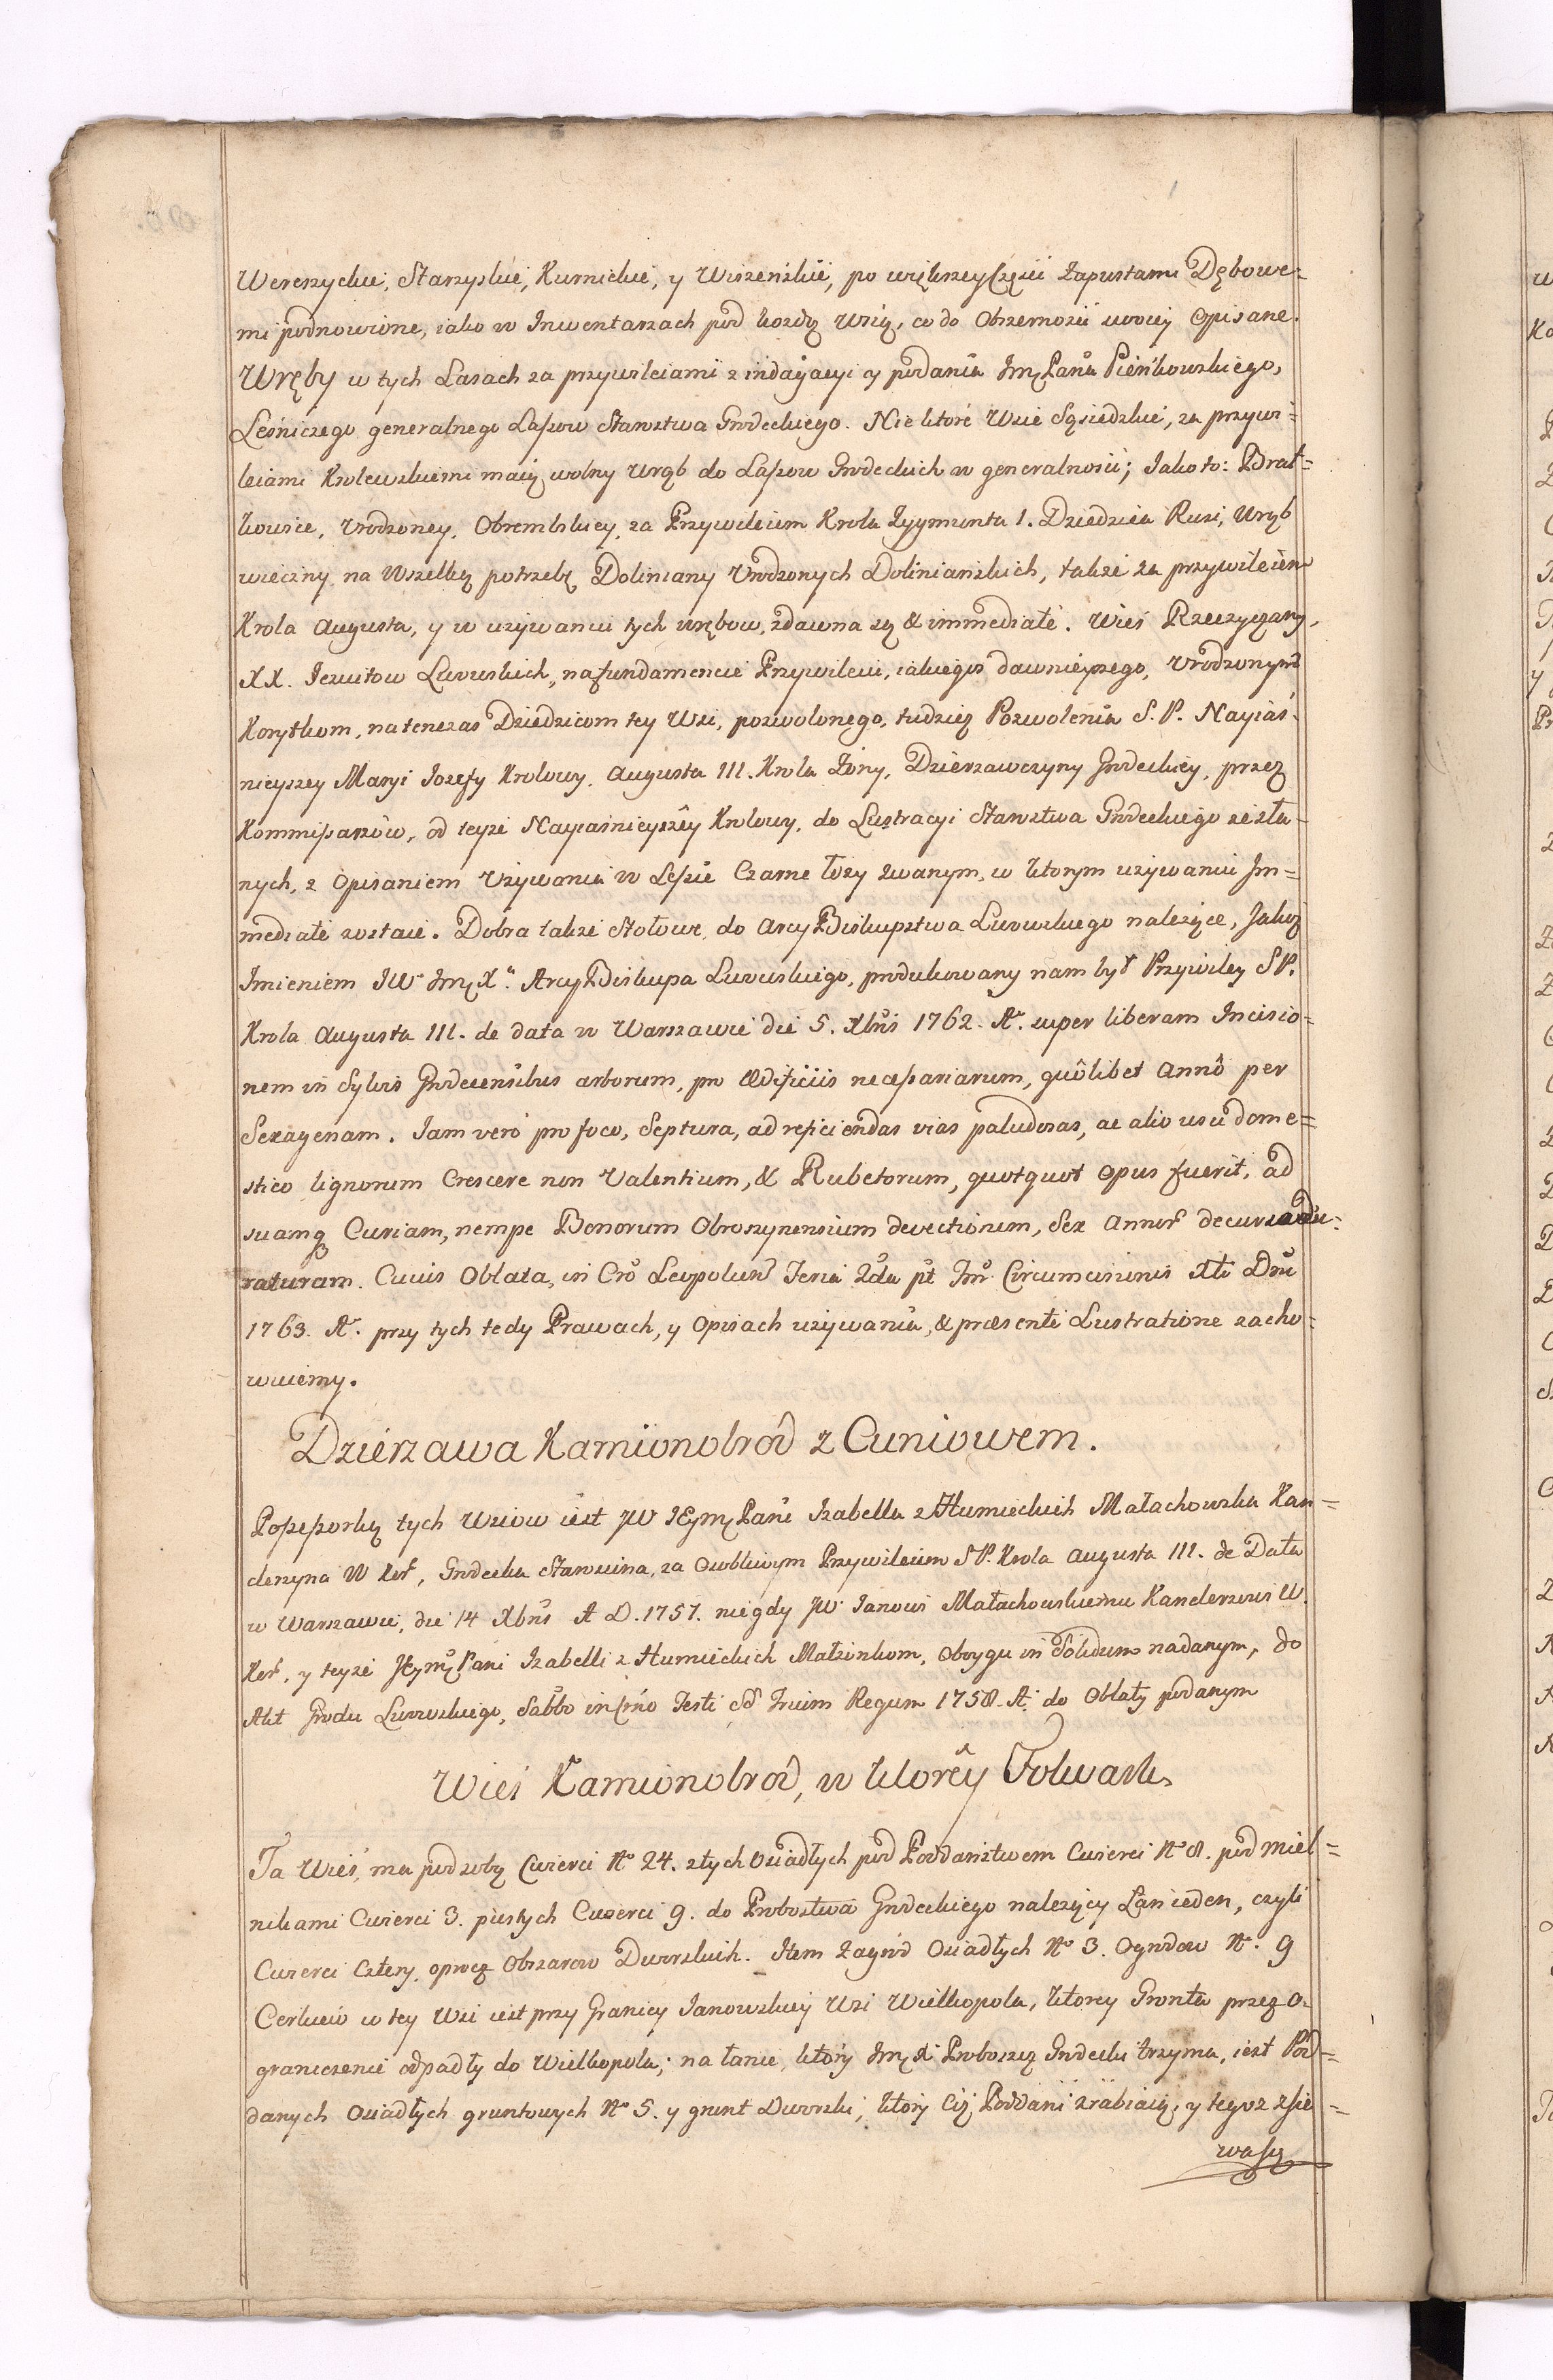 Wereszyckie, Starzyskie, Kurnickie, y Wiszeńskie, po większey części Zapustami Dębowe=
mi podnowione, iako w Inwentarzach pod każdą Wsią, co do Obszerności swoiey Opisane.
Wręby w tych Lasach za przywileiami z indagacyi y podania Jmę Pana Pieńkowskiego,
Leśniczego generalnego Lassow Starostwa Grodeckiego. Niektore Wsie Sąsiedzkie, za przywi=
leiami Krolewskiemi maią wolny Wrąb do Lassow Grodeckich w generalności; Jako to: Brat=
kowice, Vrodzoney, za Przywileiem Krola Zygmunta 1. Dziedzica Rusi, Wrąb
wieczny na Wszelką potrzebę Doliniany Vrodzonych Doliniańskich, także za przywileiem
Krola Augusta, y w używaniu tych wrębow, zdawna są & immediate. Wieś Rzeczyczany,
XX. Jezuitow Lwowskich, na fundamencie Przywileiu, iakiegoś dawnieyszego, Vrodzonym
Korytkom, natenczas Dziedzicom tey Wsi, pozwolonego, tudzież Pozwolenia S. P. Nayiaś-
nieyszey Maryi Jozefy Krolowy, Augusta III. Krola Żony, Dzierżawczyny Grodeckiey, przez
Kommissarzow, od teyże Nayiaśnieyszey Krolowy, do Lustracyi Starostwa Grodeckiego zesła=
nych, z Opisaniem Vżywania w Lesie Czarne Łozy zwanym, w ktorym używaniu Im=
mediate zostaie. Dobra także Stołowe, do Arcy Biskupstwa Lwowskiego należące, Jakoż
Imieniem JW Jmę Xa. Arcy Biskupa Lwowskiego, produkowany nam był Przywiley S P.
Krola Augusta III. de data w Warszawie die 5. Xbris 1762. Ao. super liberam Incisio=
nem in Sylvis Grodecensibus arborum, pro Ædificiis necessariarum, quôlibet Annô per
Sexagenam. Jam verò pro foco, Septura, ad reficiendas vias paludosas, ac alio usu dome=
stico lignorum Crescere non Valentium, & Rubetorum, quotquot Opus fuerit, ad
suamq Curiam, nempe Bonorum Obroszynensium devectionum, Sex Annor decursu du=
raturam. Cuius Oblata, in Cro Leopolien Feria 2da pt Fm Circumcisionis Xti Dni
1763. Ao. przy tych tedy Prawach, y Opisach używania, & præsenti Lustratione zacho=
wuiemy.
Dzierzawa Kamionobrod z Cuniowem.
Possessorką tych Wsiow iest JW JEymę Pani Izabella z Humieckich Małachowska Kan=
clerzyna W Kor, Grodecka Starościna, za Osobliwym Przywileiem S P. Krola Augusta III. de Data
w Warszawie, die 14 Xbris A D. 1757. niegdy JW Janowi Małachowskiemu Kanclerzowi W.
Kor, y teyże JEymę Pani Izabelli z Humieckich Małżonkom, Oboygu in Solidum nadanym, do
Akt Grodu Lwowskiego, Sabbo in Crno Festi SS Trium Regum 1758. A. do Oblaty podanym
Wieś Kamionobrod, w ktorey Folwark.
Ta Wieś, ma pod sobą Cwierci No 24. z tych Osiadłych pod Poddaństwem Cwierci No 8. pod Miel=
nikami Cwierci 3. pustych Cwierci 9. do Probostwa Grodeckiego należący Łan ieden, czyli
Cwierci Cztery, oprocz Obszarow Dworskich. Item Zagrod Osiadłych No 3. Ogrodow No. 9
Cerkiew w tey Wsi iest przy Granicy Janowskiey Wsi Wielkopola, ktorey Gronta przez O=
graniczenie odpadły do Wielkopola; na łanie, ktory Jmę X. Proboszcz Grodecki trzyma, iest Pod=
danych Osiadłych gruntowych No 5. y grunt Dworski, ktory Ciż Poddani zrabiaią, y tegoż zsie=
waią